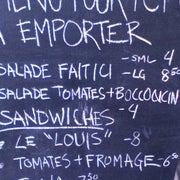 MENU POUR
A EMPORTER
-SML 4
SALADE FAITICI -LG 8
SALADE TOMATES+BOCCOCICINI
SANDWICHES -4
LE "LOUIS" -8
TOMATES+FROMAGE-6.50
7.50